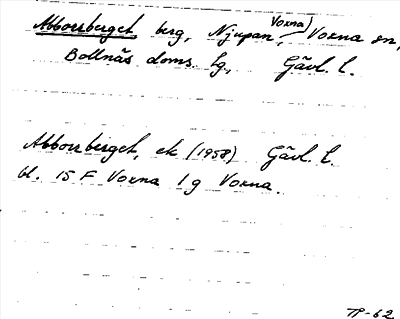 Abborrberget berg, Njupan, Voxna) Voxna sn,
Bollnäs doms. lg, Gävl. l.
Abborrberget, ek (1958) Gävl. l.
bl. 15 F Voxna 1 g Voxna.
TP-62